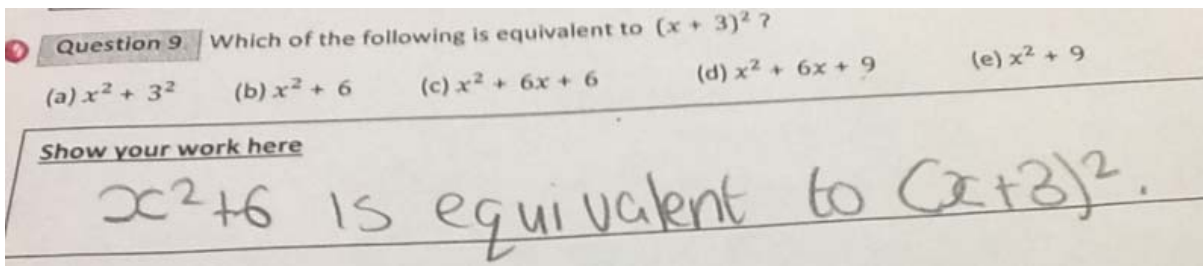 Question 9. Which of the following is equivalent to (x + 3)² ?
(a) x² + 3² (b) x² + 6 (c) x² + 6x + 6 (d) x² + 6x + 9 (e) x² + 9
Show your work here
x²+6 is equivalent to (x+3)².